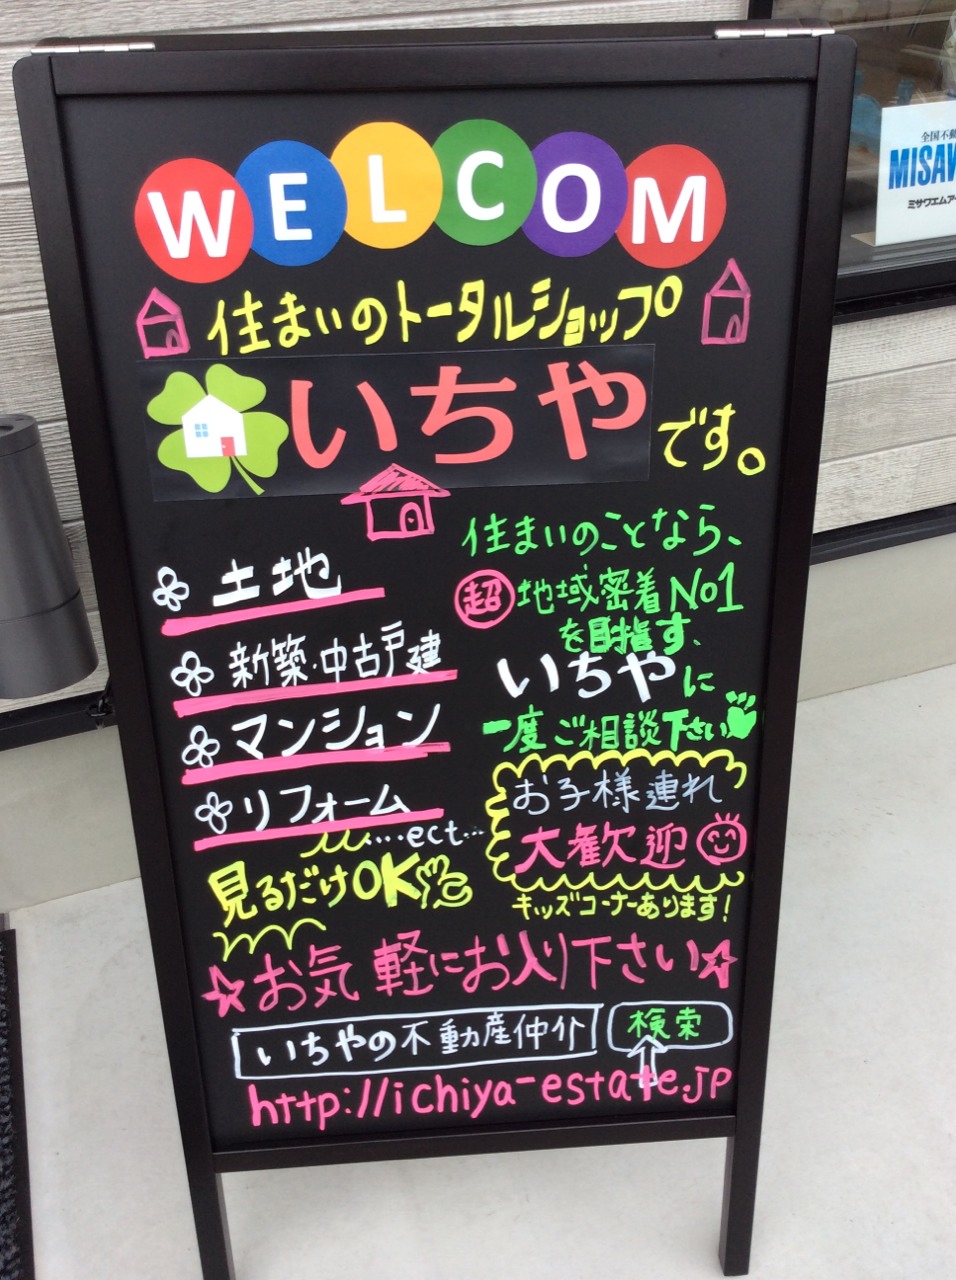 WELCOM
住まいのトータルショップ
いちやです。
土地
新築・中古戸建
マンション
リフォーム
...ect...
見るだけOK
住まいのことなら、
超地域密着No1
を目指す、
いちやに
一度ご相談下さい
お子様連れ
大歓迎
キッズコーナーあります!
☆お気軽にお入り下さい☆
いちやの不動産仲介 検索
http://ichiya-estate.jp
全国不動
MISAW
ミサワエムアー